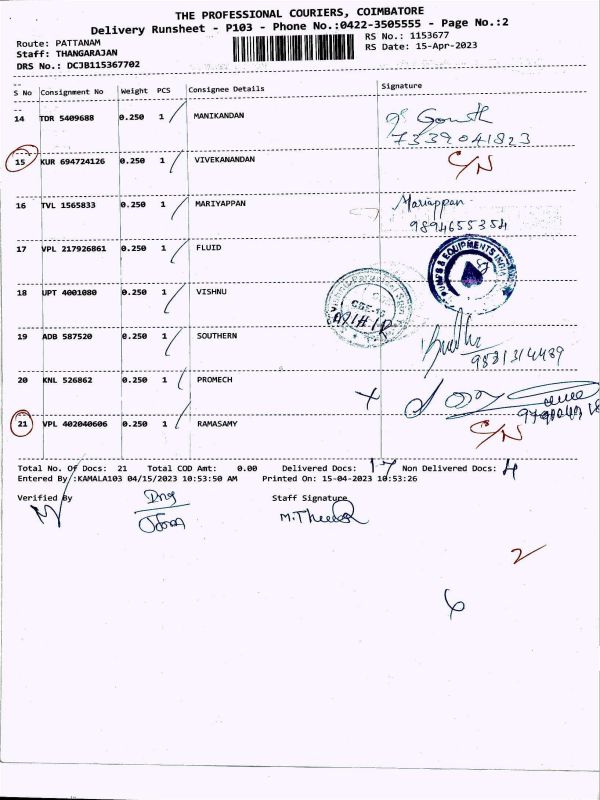 THE PROFESSIONAL COURIERS, COIMBATORE
Delivery Runsheet - P103 - Phone No.:0422-3505555 - Page No.:2
Route: PATTANAM RS No.: 1153677
Staff: THANGARAJAN RS Date: 15-Apr-2023
DRS No.: DCJB115367702
S No Consignment No Weight PCS Consignee Details Signature
14 TDR 5409688 0.250 1 MANIKANDAN
7339041823
15 KUR 694724126 0.250 1 VIVEKANANDAN C/N
16 TVL 1565833 0.250 1 MARIYAPPAN Mariappan
9894655354
17 VPL 217926861 0.250 1 FLUID PUMPS & EQUIPMENTS INDIA
18 UPT 4001080 0.250 1 VISHNU
19 ADB 587520 0.250 1 SOUTHERN
20 KNL 526862 0.250 1 PROMECH
21 VPL 402040606 0.250 1 RAMASAMY C/N
Total No. Of Docs: 21 Total COD Amt: 0.00 Delivered Docs: 17 Non Delivered Docs: 4
Entered By :KAMALA103 04/15/2023 10:53:50 AM Printed On: 15-04-2023 10:53:26
Verified By Staff Signature
2